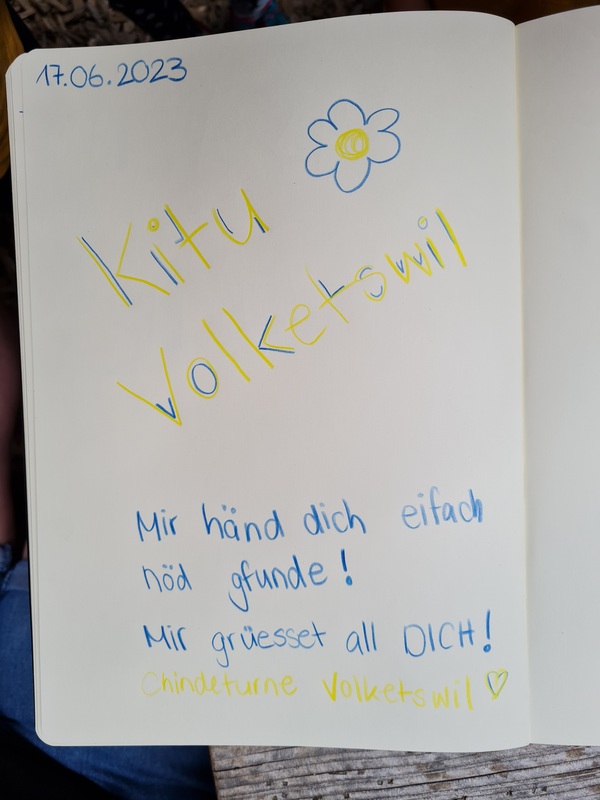 17.06.2023
Kitu
Volketswil
Mir händ dich eifach
nöd gfunde!
Mir grüesset all DICH!
Chindeturne Volketswil